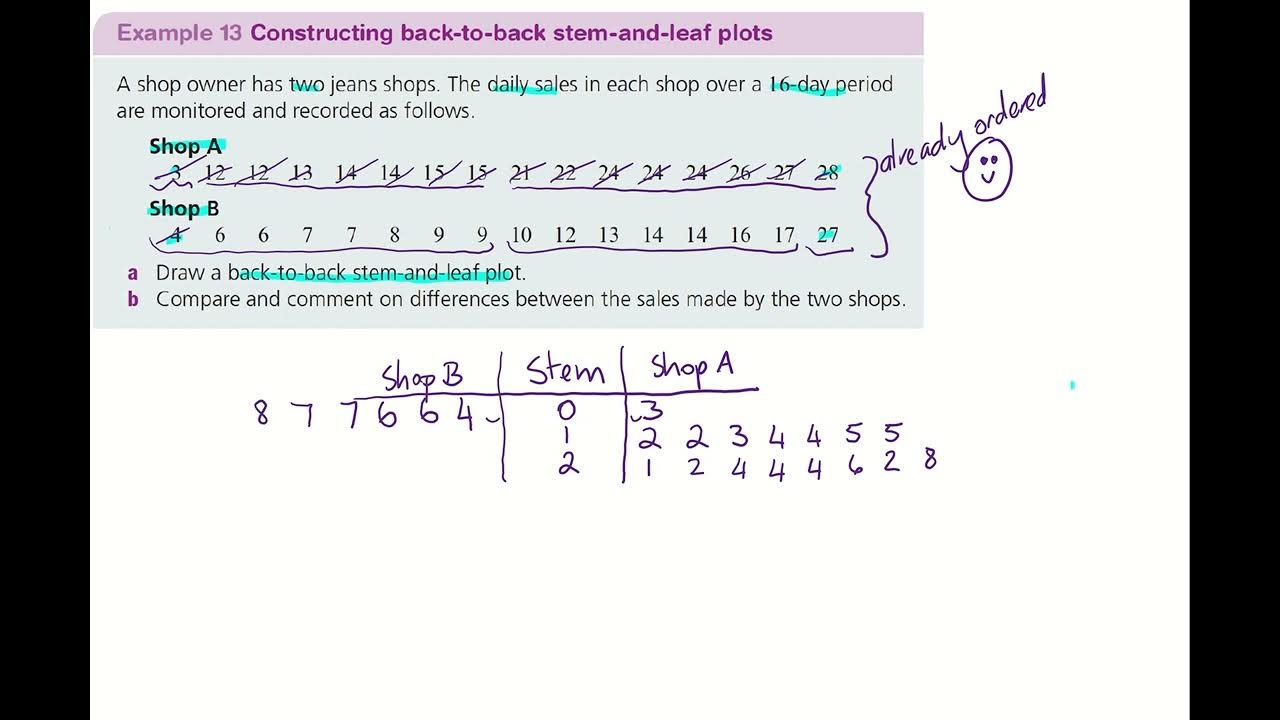 Example 13 Constructing back-to-back stem-and-leaf plots
A shop owner has two jeans shops. The daily sales in each shop over a 16-day period
are monitored and recorded as follows.
Shop A
3 12 12 13 14 14 15 15 21 22 24 24 24 26 27 28
Shop B
4 6 6 7 7 8 9 9 10 12 13 14 14 16 17 27
already ordered
a Draw a back-to-back stem-and-leaf plot.
b Compare and comment on differences between the sales made by the two shops.
Shop B Stem Shop A
8 7 7 6 6 4 0 3
1 2 2 3 4 4 5 5
2 1 2 4 4 4 6 2 8